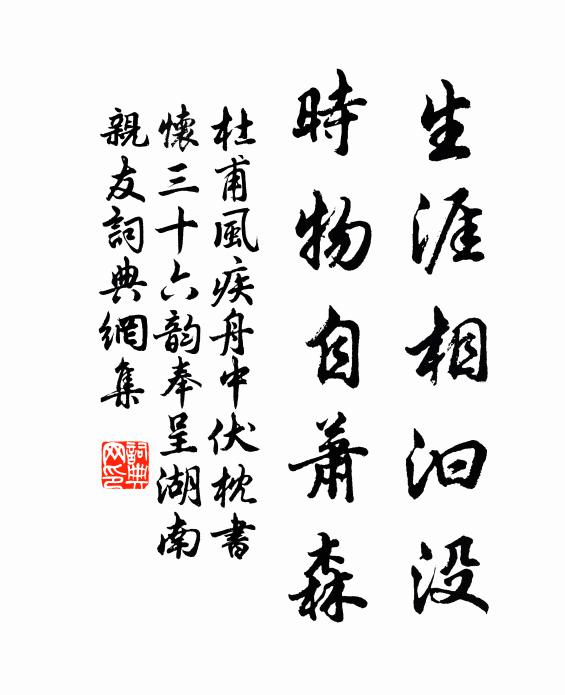 生涯相汩没
時物自蕭森
杜甫風疾舟中伏枕書
懷三十六韵奉呈湖南
親友詞典網集
詞典網印